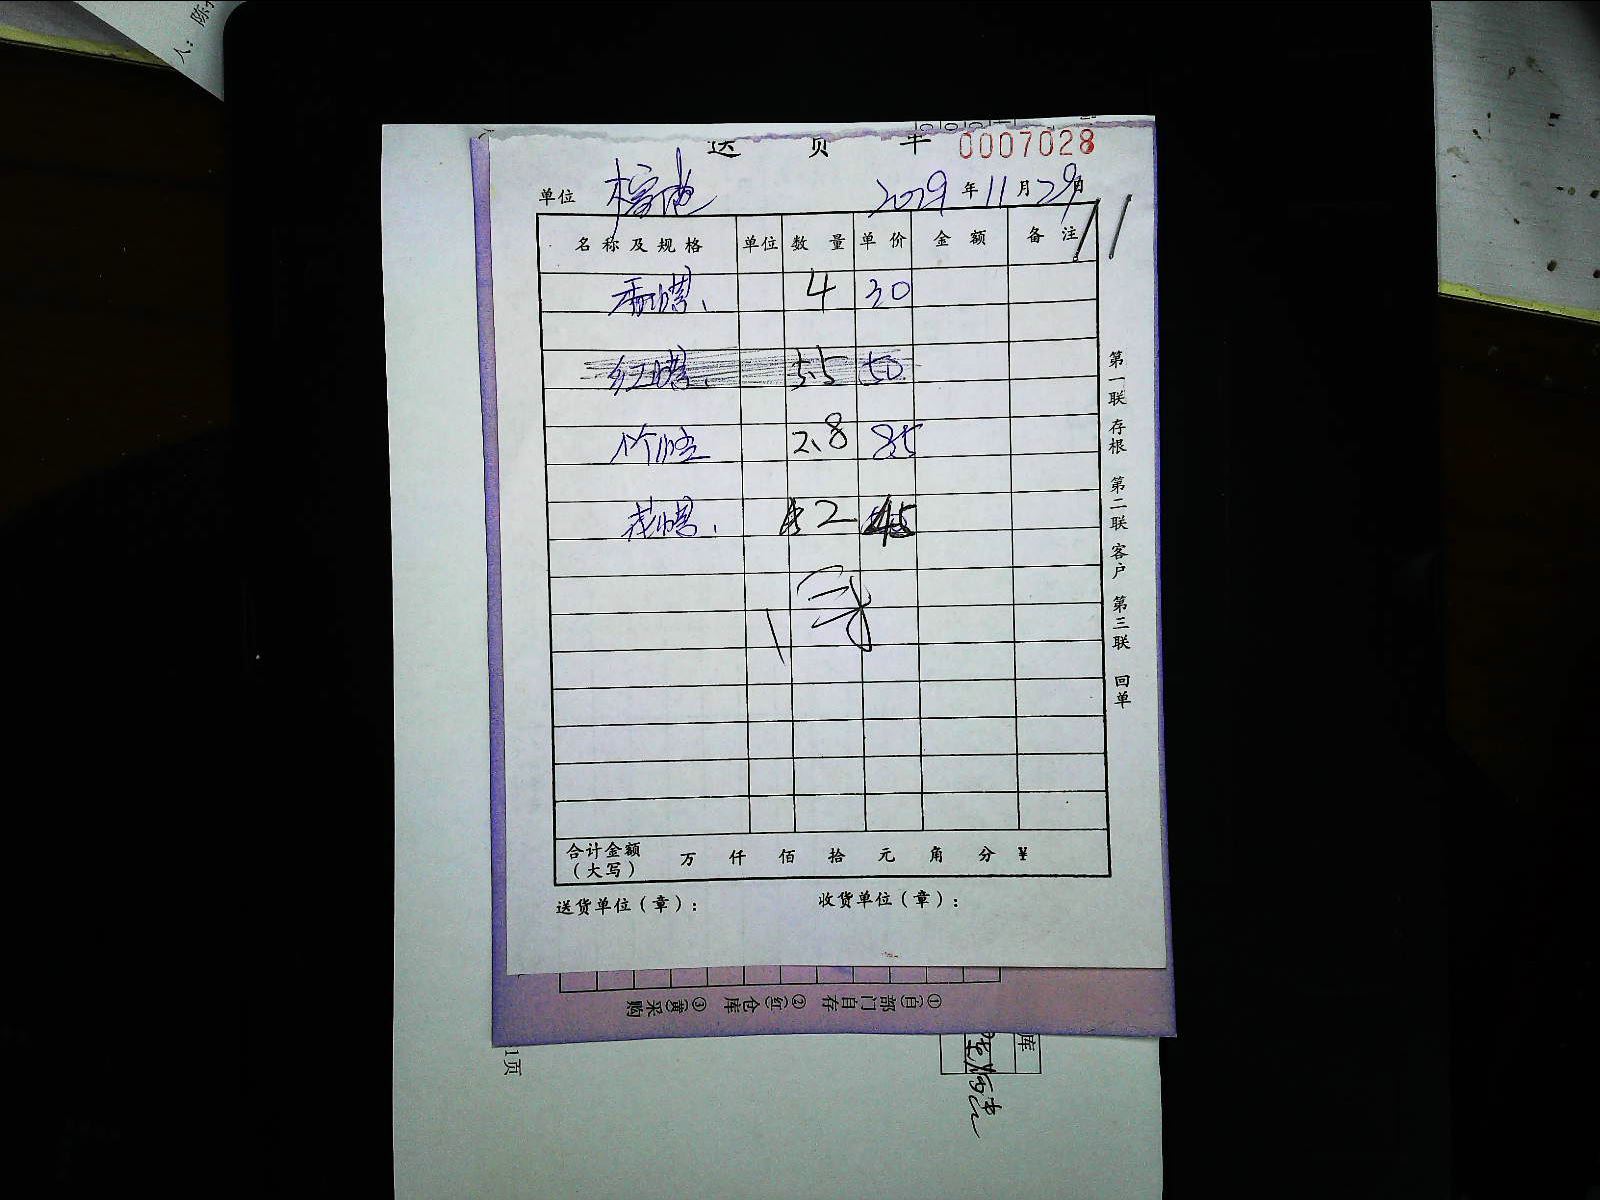 人：陈
送 货 单 0007028
单位 2029 年 11 月 29 日
名称及规格 单位 数量 单价 金额 备注
香 4 30
红 5.5 50
2.8 85
2 45
合计金额（大写） 万 仟 佰 拾 元 角 分 ¥
送货单位（章）： 收货单位（章）：
第一联 存根 第二联 客户 第三联 回单
①(白)部门自存 ②(红)仓库 ③(黄)采购
1页
库